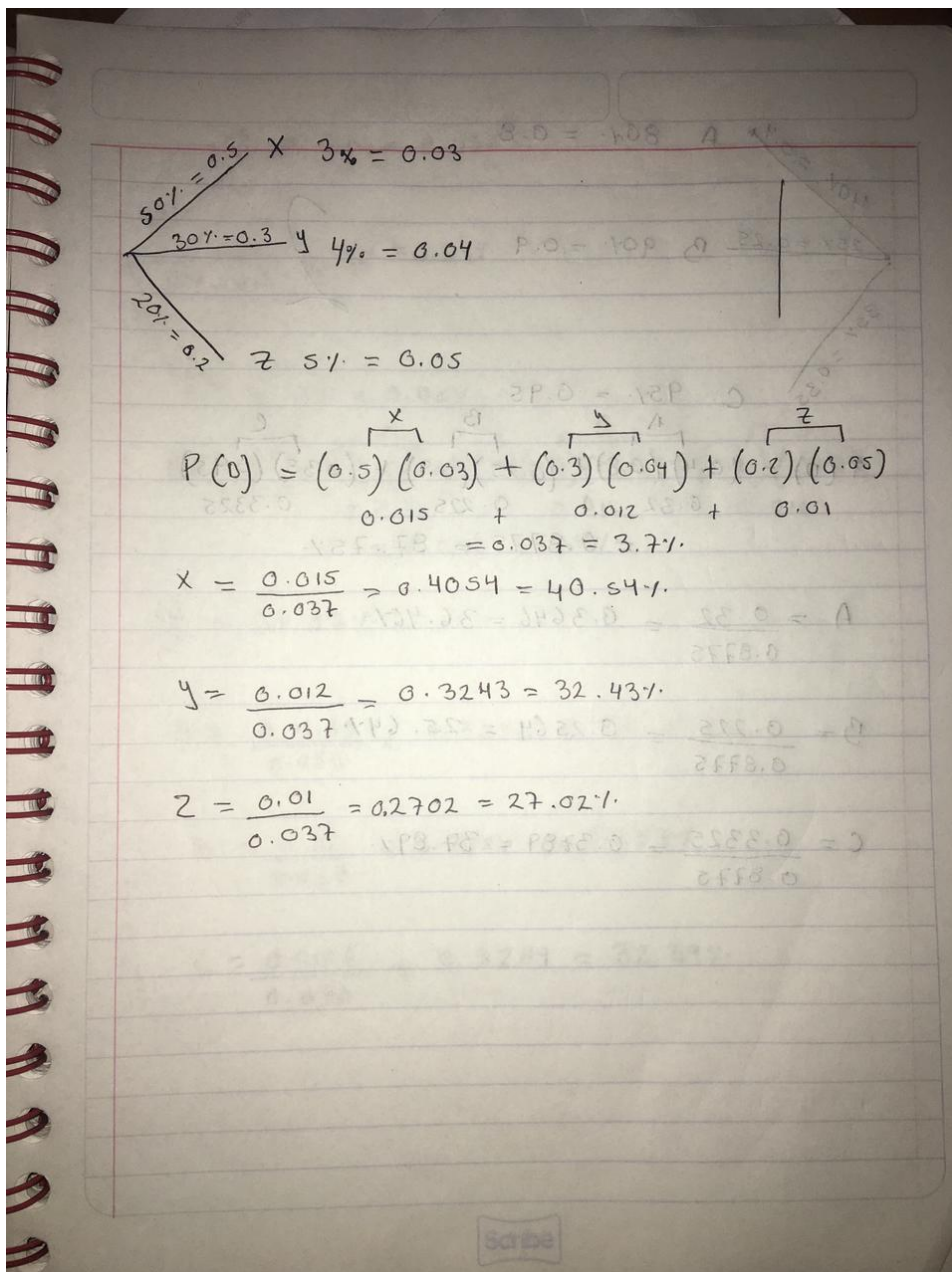 50% = 0.5 X 3% = 0.03
30% = 0.3 y 4% = 0.04
20% = 0.2 Z 5% = 0.05
X y Z
P(D) = (0.5) (0.03) + (0.3) (0.04) + (0.2) (0.05)
0.015 + 0.012 + 0.01
= 0.037 = 3.7%
X = 0.015 / 0.037 = 0.4054 = 40.54%
y = 0.012 / 0.037 = 0.3243 = 32.43%
Z = 0.01 / 0.037 = 0.2702 = 27.02%
Scribe